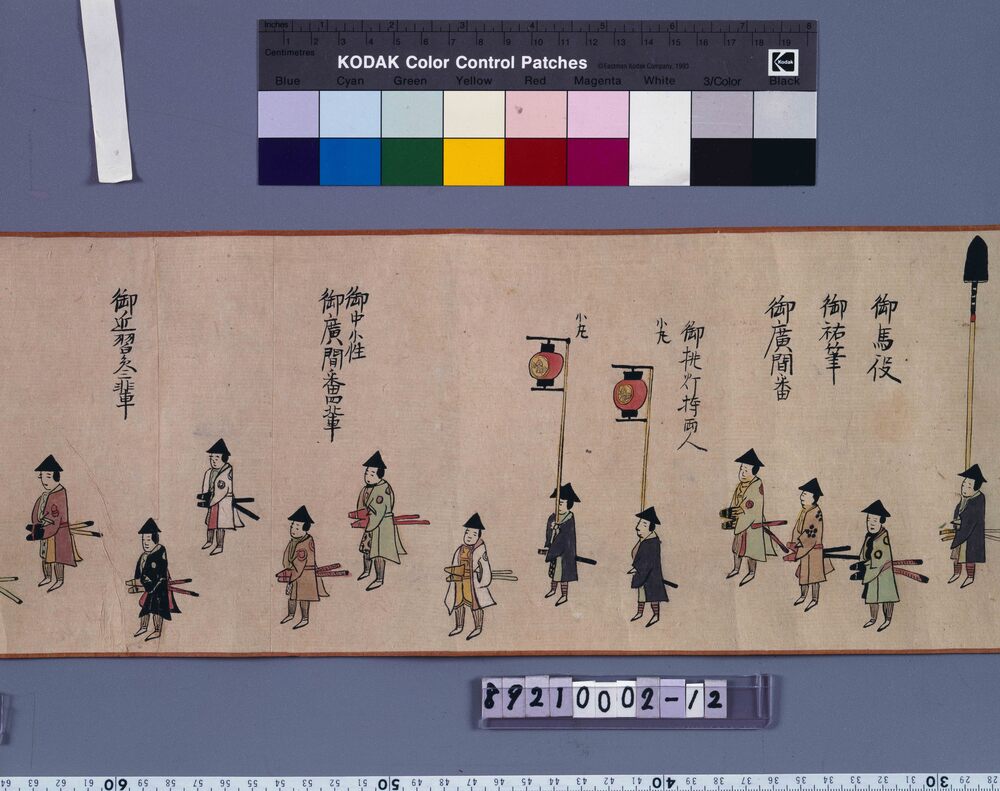 Inches 1 2 3 4 5 6 7 8
1 2 3 4 5 6 7 8 9 10 11 12 13 14 15 16 17 18 19
Centimetres
KODAK Color Control Patches
©Eastman Kodak Company, 1993
Kodak
Blue Cyan Green Yellow Red Magenta White 3/Color Black
御馬役
御祐筆
御廣間番
御挑灯持両人
小丸
小丸
御中小性
御廣間番四輩
御近習
89210002-12
64 63 62 61 60 59 58 57 56 55 54 53 52 51 50 49 48 47 46 45 44 43 42 41 40 39 38 37 36 35 34 33 32 31 30 29 28